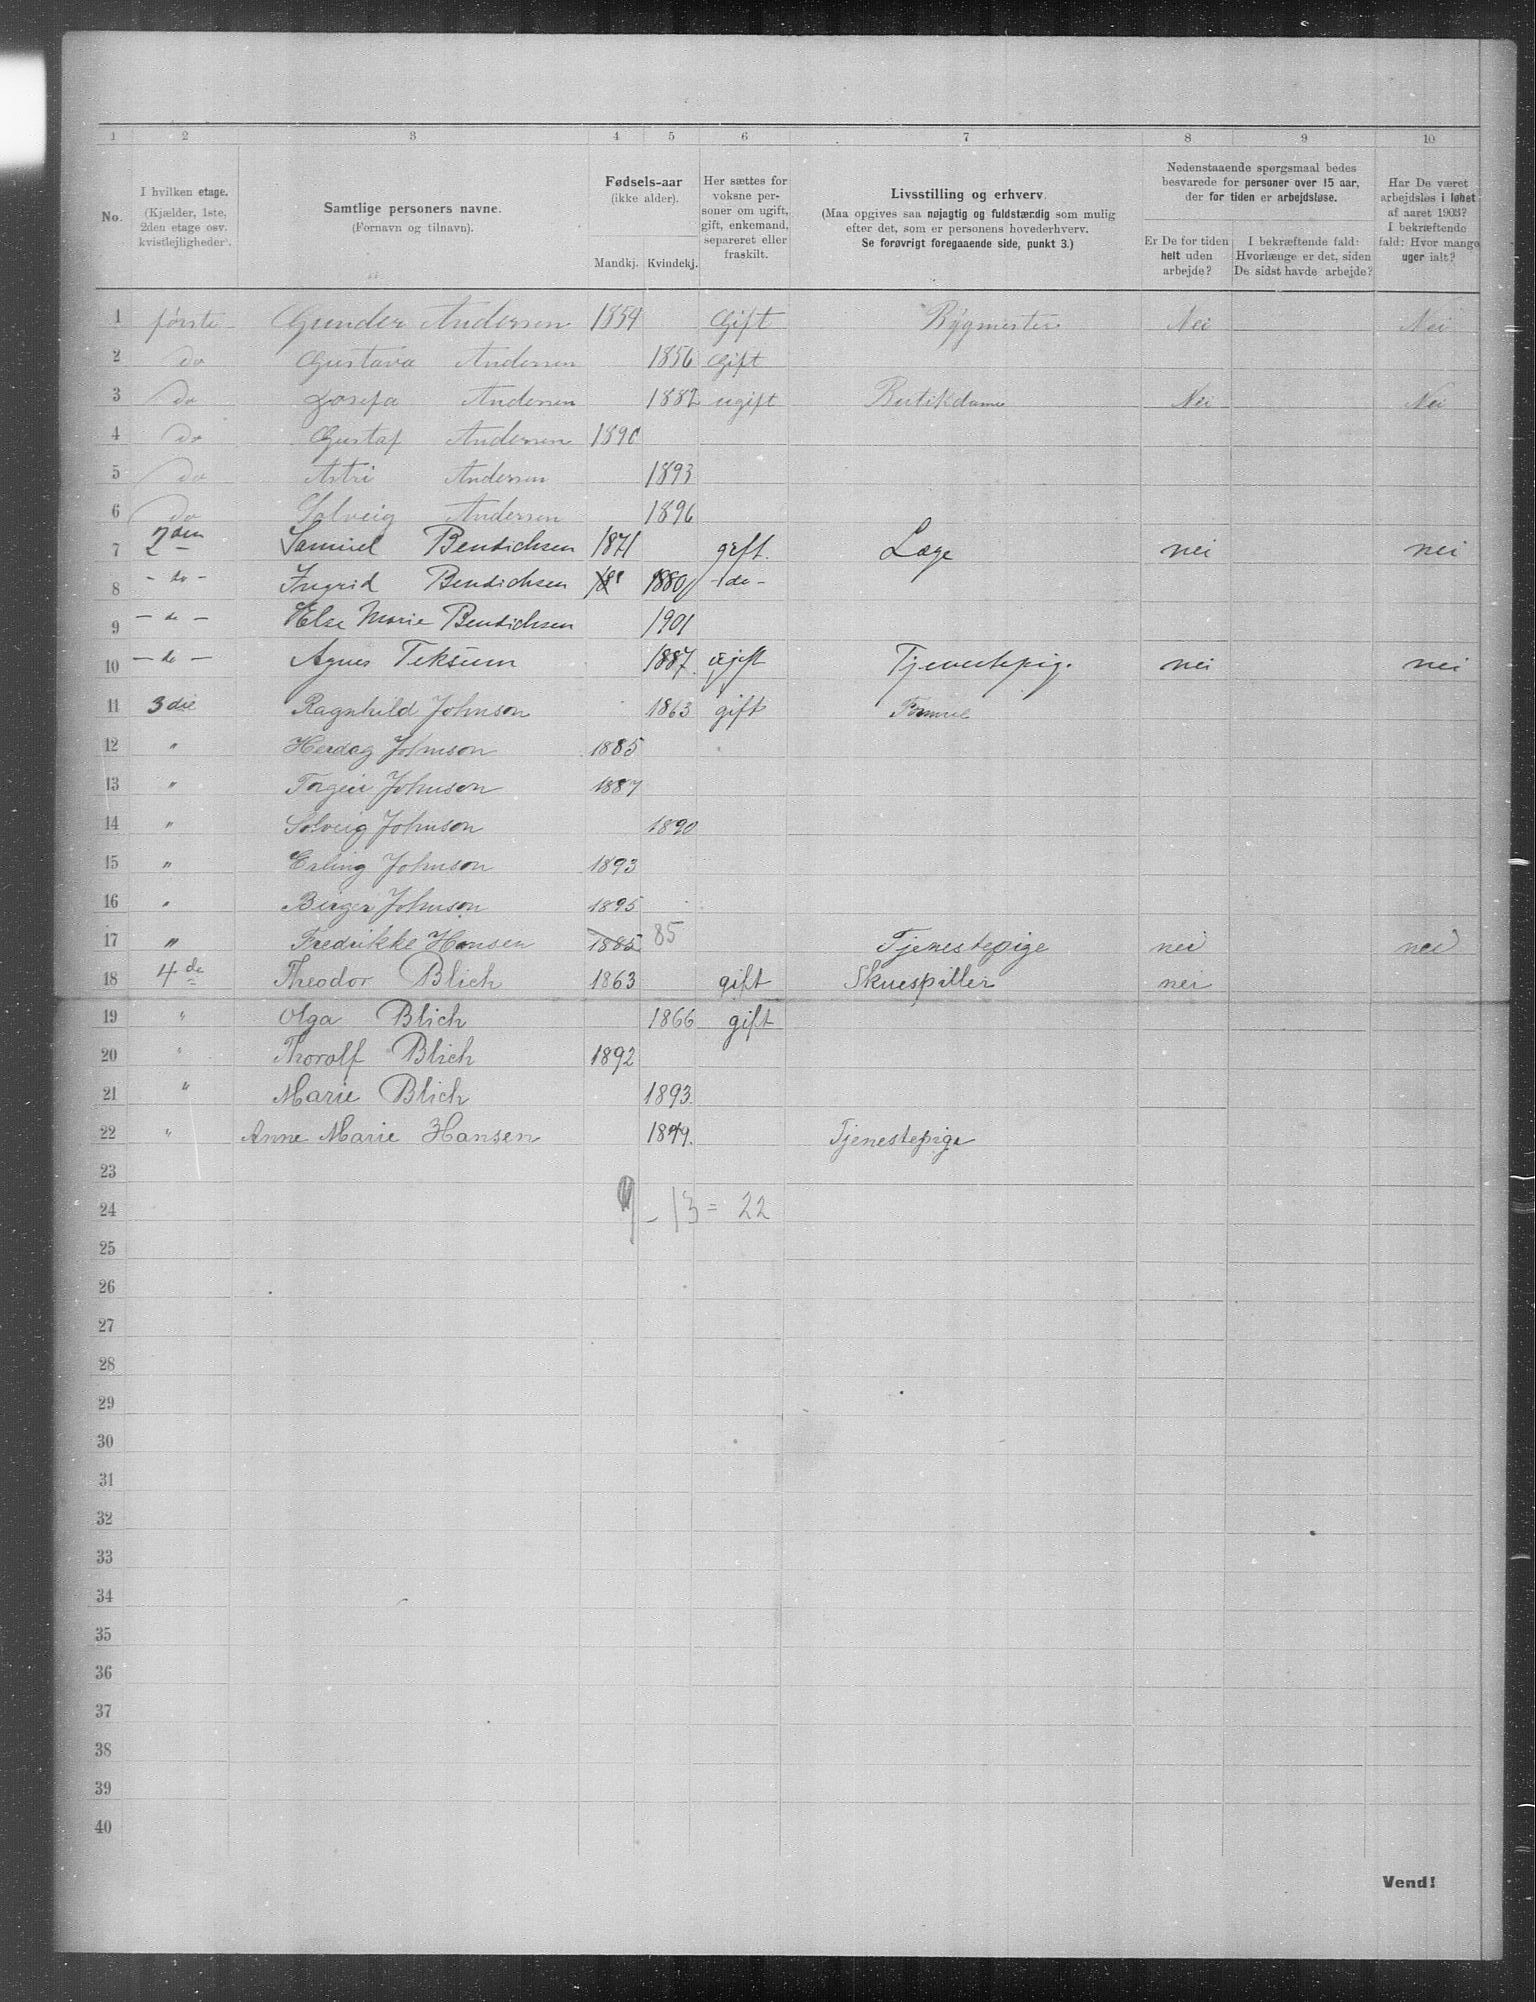 1 2 3 4 5 6 7 8 9 10
No.
I hvilken etage.
(Kjælder, 1ste,
2den etage osv.
kvistlejligheder).
Samtlige personers navne.
(Fornavn og tilnavn).
Fødsels-aar
(ikke alder).
Mandkj. Kvindekj.
Her sættes for
voksne per-
soner om ugift,
gift, enkemand,
separeret eller
fraskilt.
Livsstilling og erhverv.
(Maa opgives saa nøjagtig og fuldstærdig som mulig
efter det, som er personens hovederhverv.
Se forøvrigt foregaaende side, punkt 3.)
Nedenstaaende spørgsmaal bedes
besvarede for personer over 15 aar,
der for tiden er arbejdsløse.
Er De for tiden
helt uden
arbejde?
I bekræftende fald:
Hvorlænge er det, siden
De sidst havde arbejde?
Har De været
arbejdsløs i løbet
af aaret 1903?
I bekræftende
fald: Hvor mange
uger ialt?
1 første Gunder Andersen 1854 Gift Bygmester Nei Nei
2 do Gustava Andersen 1856 Gift
3 do Josefa Andersen 1882 ugift Butikdame Nei Nei
4 do Gustaf Andersen 1890
5 do Astri Andersen 1893
6 do Solveig Andersen 1896
7 2den Samuel Bendichsen 1871 gift. Læge nei nei
8 - do - Ingrid Bendichsen 18 1880 - do -
9 - do - Else Marie Bendichsen 1901
10 - do - Agnes Teksum 1887. ugift Tjenestepig. nei nei
11 3die Ragnhild Johnson 1863 gift
12 " Herdag Johnson 1885
13 " Torgeir Johnson 1887
14 " Solveig Johnson 1890
15 " Erling Johnson 1893
16 " Birger Johnson 1895
17 " Fredrikke Hansen 1885 85 Tjenestepige nei nei
18 4de Theodor Blich 1863 gift Skuespiller nei
19 " Olga Blich 1866 gift
20 " Thorolf Blich 1892
21 " Marie Blich 1893
22 " Anne Marie Hansen 1879. Tjenestepige
23
24 9 - 13 = 22
25
26
27
28
29
30
31
32
33
34
35
36
37
38
39
40
Vend!